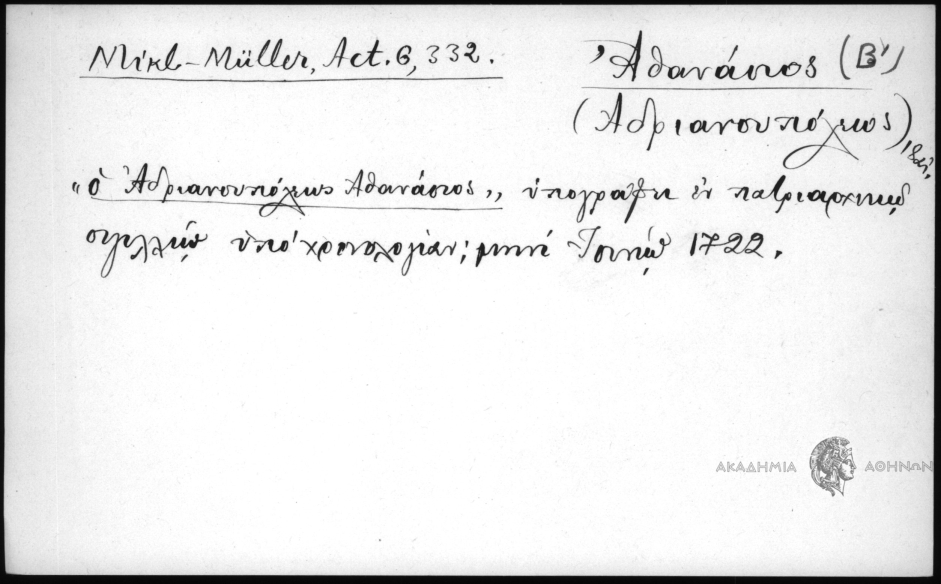 Mikl-Müller, Act. 6, 332.
Ἀθανάσιος (Β')
(Ἀδριανουπόλεως)
"ὁ Ἀδριανουπόλεως Ἀθανάσιος„ ὑπογράφει ἐν πατριαρχικῷ
σιγιλλίῳ ὑπὸ χρονολογίαν; μηνὶ Ἰουνίῳ 1722.
ΑΚΑΔΗΜΙΑ ΑΘΗΝΩΝ